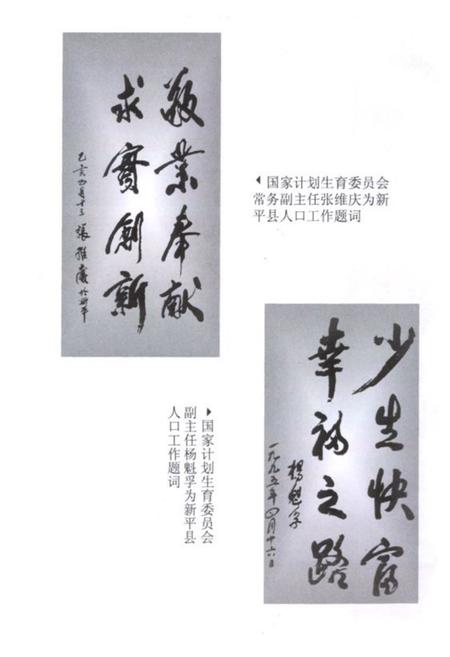 敬业奉献
求實创新
乙亥四月十三張維慶於新平
国家计划生育委员会
常务副主任张维庆为新
平县人口工作题词
少生快富
幸福之路
楊魁孚
一九九五年四月十六日
国家计划生育委员会
副主任杨魁孚为新平县
人口工作题词